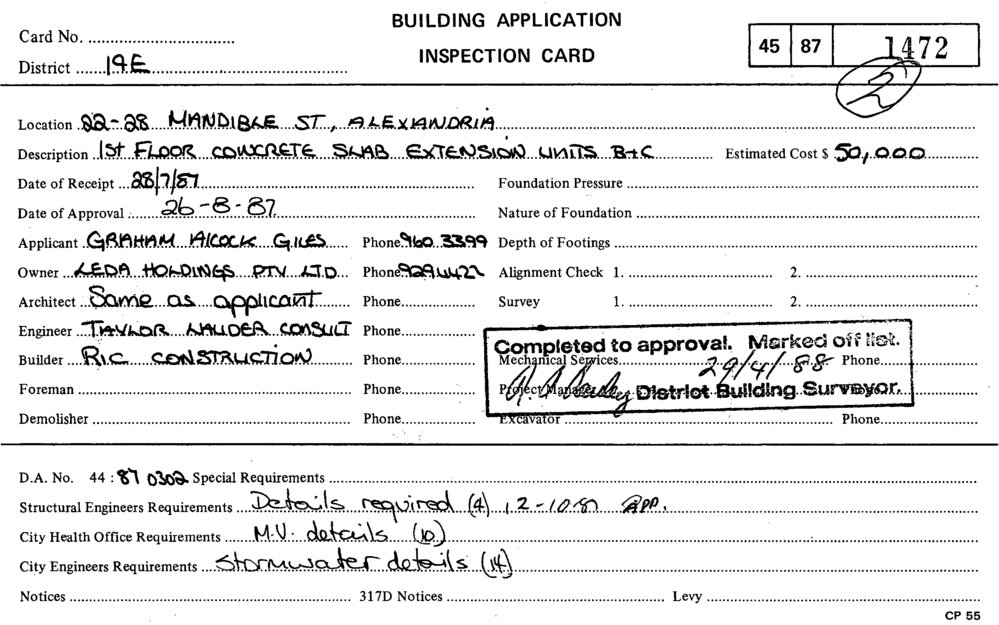 BUILDING APPLICATION
INSPECTION CARD
Card No.
District 19E
45 87 1472
2
Location 22-28 MANDIBLE ST, ALEXANDRIA
Description 1st FLOOR CONCRETE SLAB EXTENSION UNITS B+C Estimated Cost $ 50,000
Date of Receipt 28/7/87 Foundation Pressure
Date of Approval 26-8-87 Nature of Foundation
Applicant GRAHAM AlCOCK GILES Phone 960 3399 Depth of Footings
Owner LEDA HOLDINGS PTY LTD Phone 9294422 Alignment Check 1. 2.
Architect Same as applicant Phone Survey 1. 2.
Engineer TAYLOR LAUDER CONSULT Phone
Completed to approval. Marked off list.
Builder RIC CONSTRUCTION Phone Mechanical Services 29/4/88 Phone
Foreman Phone Project Manager District Building Surveyor.
Demolisher Phone Excavator Phone
D.A. No. 44 : 87 0302 Special Requirements
Structural Engineers Requirements Details required (4) 12-10-87 App.
City Health Office Requirements M.V. details (10)
City Engineers Requirements Stormwater details (14)
Notices 317D Notices Levy
CP 55